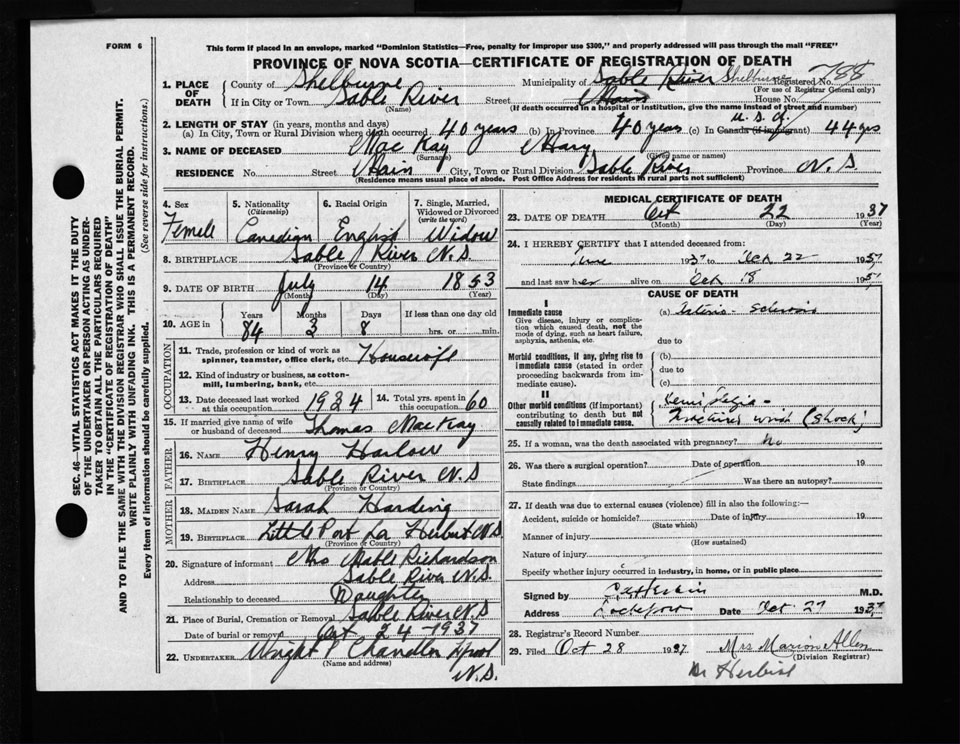 FORM 6
This form if placed in an envelope, marked "Dominion Statistics—Free, penalty for improper use $300," and properly addressed will pass through the mail "FREE"
PROVINCE OF NOVA SCOTIA—CERTIFICATE OF REGISTRATION OF DEATH
1. PLACE OF DEATH County of Shelburne Municipality of Sable River Shelburne Registered No. 788
(For use of Registrar General only)
If in City or Town Sable River Street Main House No.
(Name) (If death occurred in a hospital or institution, give the name instead of street and number)
2. LENGTH OF STAY (in years, months and days) U.S.A.
(a) In City, Town or Rural Division where death occurred 40 years (b) In Province 40 years (c) In Canada (if immigrant) 44 yrs
3. NAME OF DECEASED MacKay Mary
(Surname) (Given name or names)
RESIDENCE No. Street Main City, Town or Rural Division Sable River Province N.S.
(Residence means usual place of abode. Post Office Address for residents in rural parts not sufficient)
4. Sex 5. Nationality (Citizenship) 6. Racial Origin 7. Single, Married, Widowed or Divorced (write the word)
Femele Canadian English Widow
8. BIRTHPLACE Sable River N.S.
(Province or Country)
9. DATE OF BIRTH July 14 1853
(Month) (Day) (Year)
10. AGE in Years Months Days If less than one day
84 3 8 hrs. or min.
OCCUPATION
11. Trade, profession or kind of work as spinner, teamster, office clerk, etc. Housewife
12. Kind of industry or business, as cotton-mill, lumbering, bank, etc.
13. Date deceased last worked at this occupation 1934 14. Total yrs. spent in this occupation 60
15. If married give name of wife or husband of deceased Thomas MacKay
FATHER
16. NAME Henry Harlow
17. BIRTHPLACE Sable River N.S
(Province or Country)
MOTHER
18. MAIDEN NAME Sarah Harding
19. BIRTHPLACE Little Port La Herbert N.S.
(Province or Country)
20. Signature of informant Mrs Mable Richardson
Address Sable River N.S.
Relationship to deceased Daughter
21. Place of Burial, Cremation or Removal Sable River N.S
Date of burial or removal Oct 24 - 1937
22. UNDERTAKER Wright P Chandler
(Name and address)
N.S.
MEDICAL CERTIFICATE OF DEATH
23. DATE OF DEATH Oct 22 1937
(Month) (Day) (Year)
24. I HEREBY CERTIFY that I attended deceased from:
June 1937 to Oct 22 1937
and last saw her alive on Oct 18 1937
CAUSE OF DEATH
I
Immediate cause (a) Arterio-Sclerosis
Give disease, injury or complication which caused death, not the mode of dying, such as heart failure, asphyxia, asthenia, etc.
due to
Morbid conditions, if any, giving rise to immediate cause (stated in order proceeding backwards from immediate cause). (b)
due to
(c)
II
Other morbid conditions (if important) contributing to death but not causally related to immediate cause.
(Shock)
25. If a woman, was the death associated with pregnancy? No
26. Was there a surgical operation? Date of operation 19
State findings Was there an autopsy?
27. If death was due to external causes (violence) fill in also the following:—
Accident, suicide or homicide? Date of injury 19
(State which)
Manner of injury
(How sustained)
Nature of injury
Specify whether injury occurred in industry, in home, or in public place
Signed by M.D.
Address Lockeport Date Oct. 27 1937
28. Registrar's Record Number
29. Filed Oct 28 1937 Mrs Marion Allen
(Division Registrar)
Dr Herbin
SEC. 46—VITAL STATISTICS ACT MAKES IT THE DUTY
OF THE UNDERTAKER OR PERSON ACTING AS UNDER-
TAKER TO OBTAIN ALL THE PARTICULARS REQUIRED
IN THE "CERTIFICATE OF REGISTRATION OF DEATH"
AND TO FILE THE SAME WITH THE DIVISION REGISTRAR WHO SHALL ISSUE THE BURIAL PERMIT.
WRITE PLAINLY WITH UNFADING INK. THIS IS A PERMANENT RECORD.
Every item of information should be carefully supplied. (See reverse side for instructions.)